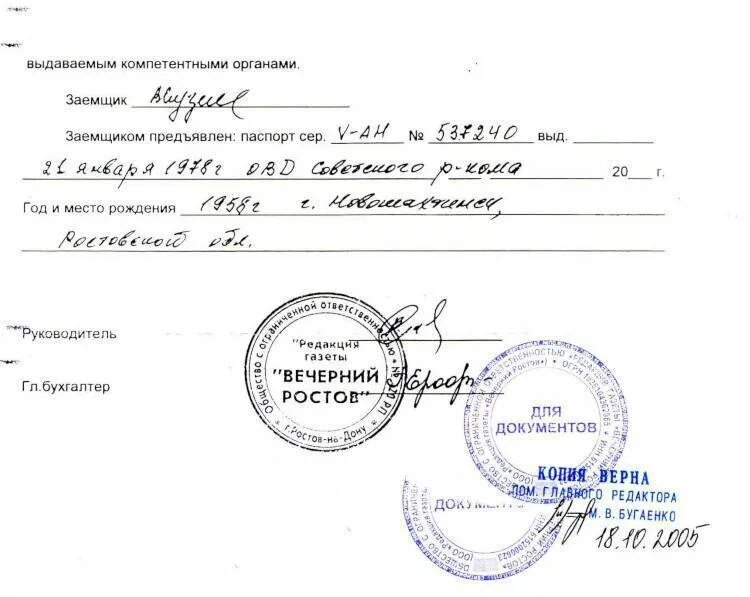 выдаваемым компетентными органами.
Заемщик
Заемщиком предъявлен: паспорт сер. V-АН № 537240 выд.
21 января 1978г ОВД Советского р-кома 20 г.
Год и место рождения 1958г г. Новошахтинск,
Ростовской обл.
Руководитель
Гл.бухгалтер
Общество с ограниченной ответственностью
"Редакция
газеты
"ВЕЧЕРНИЙ
РОСТОВ"
г.Ростов-на-Дону
ДЛЯ
ДОКУМЕНТОВ
ДОКУМЕНТО
КОПИЯ ВЕРНА
ПОМ. ГЛАВНОГО РЕДАКТОРА
М. В. БУГАЕНКО
18.10.2005